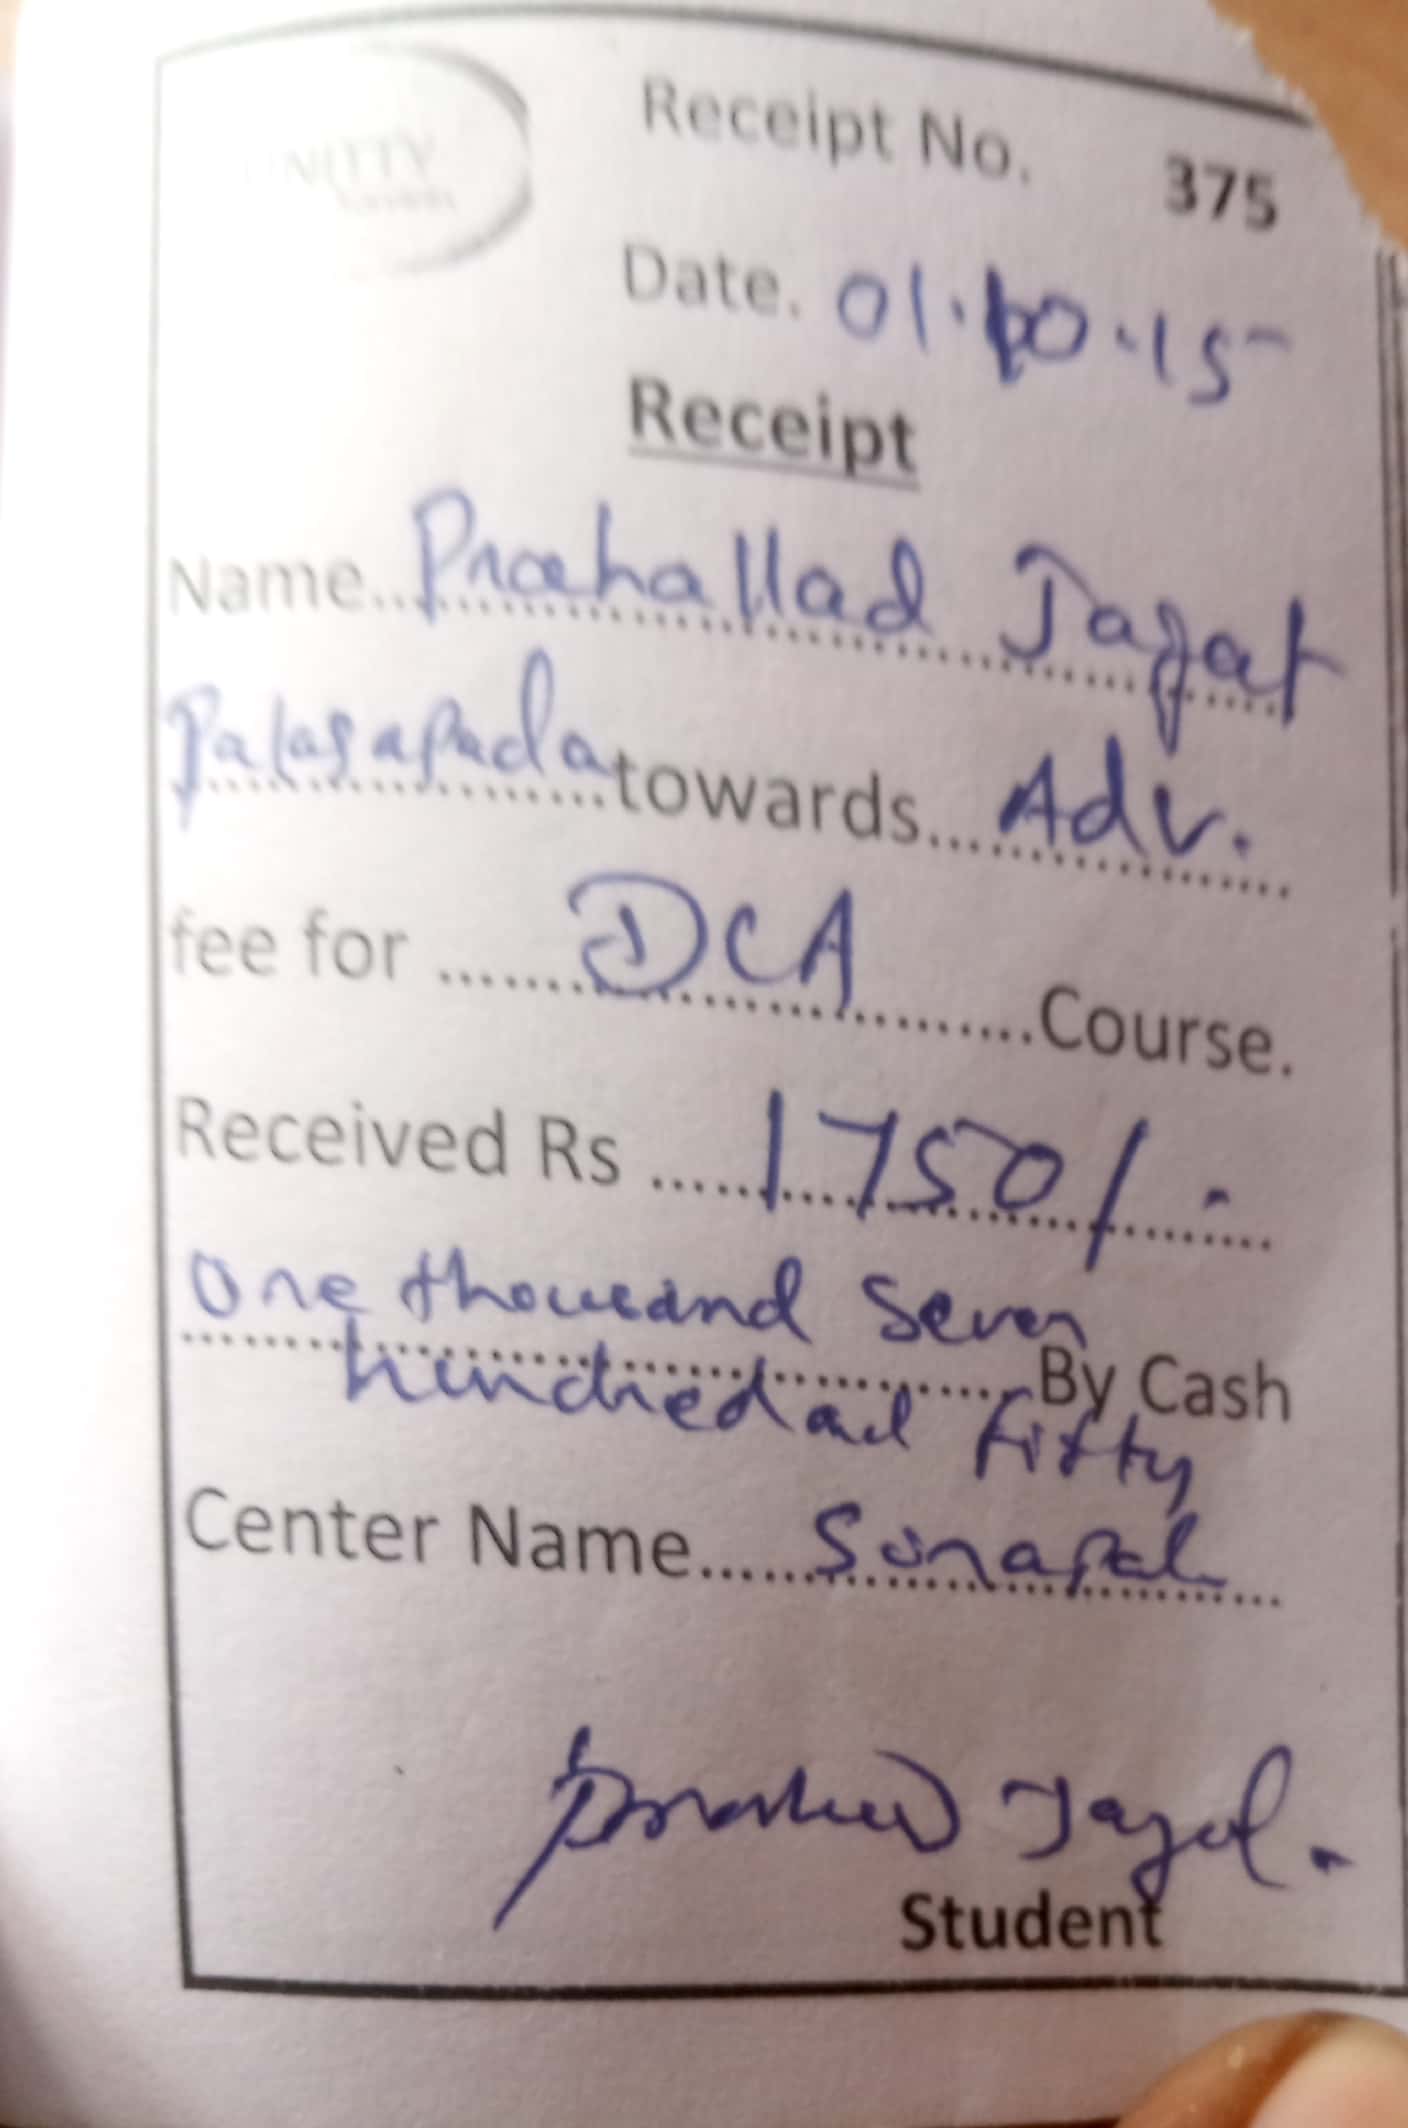 UNITTY
Receipt No. 375
Date. 01.10.15
Receipt
Name..Prahallad Jagat
Palasapada towards...Adv.
fee for ....DCA....Course.
Received Rs ....1750/-
One thousand Seven
hundred and fifty By Cash
Center Name....Sonapal
Jagat.
Student